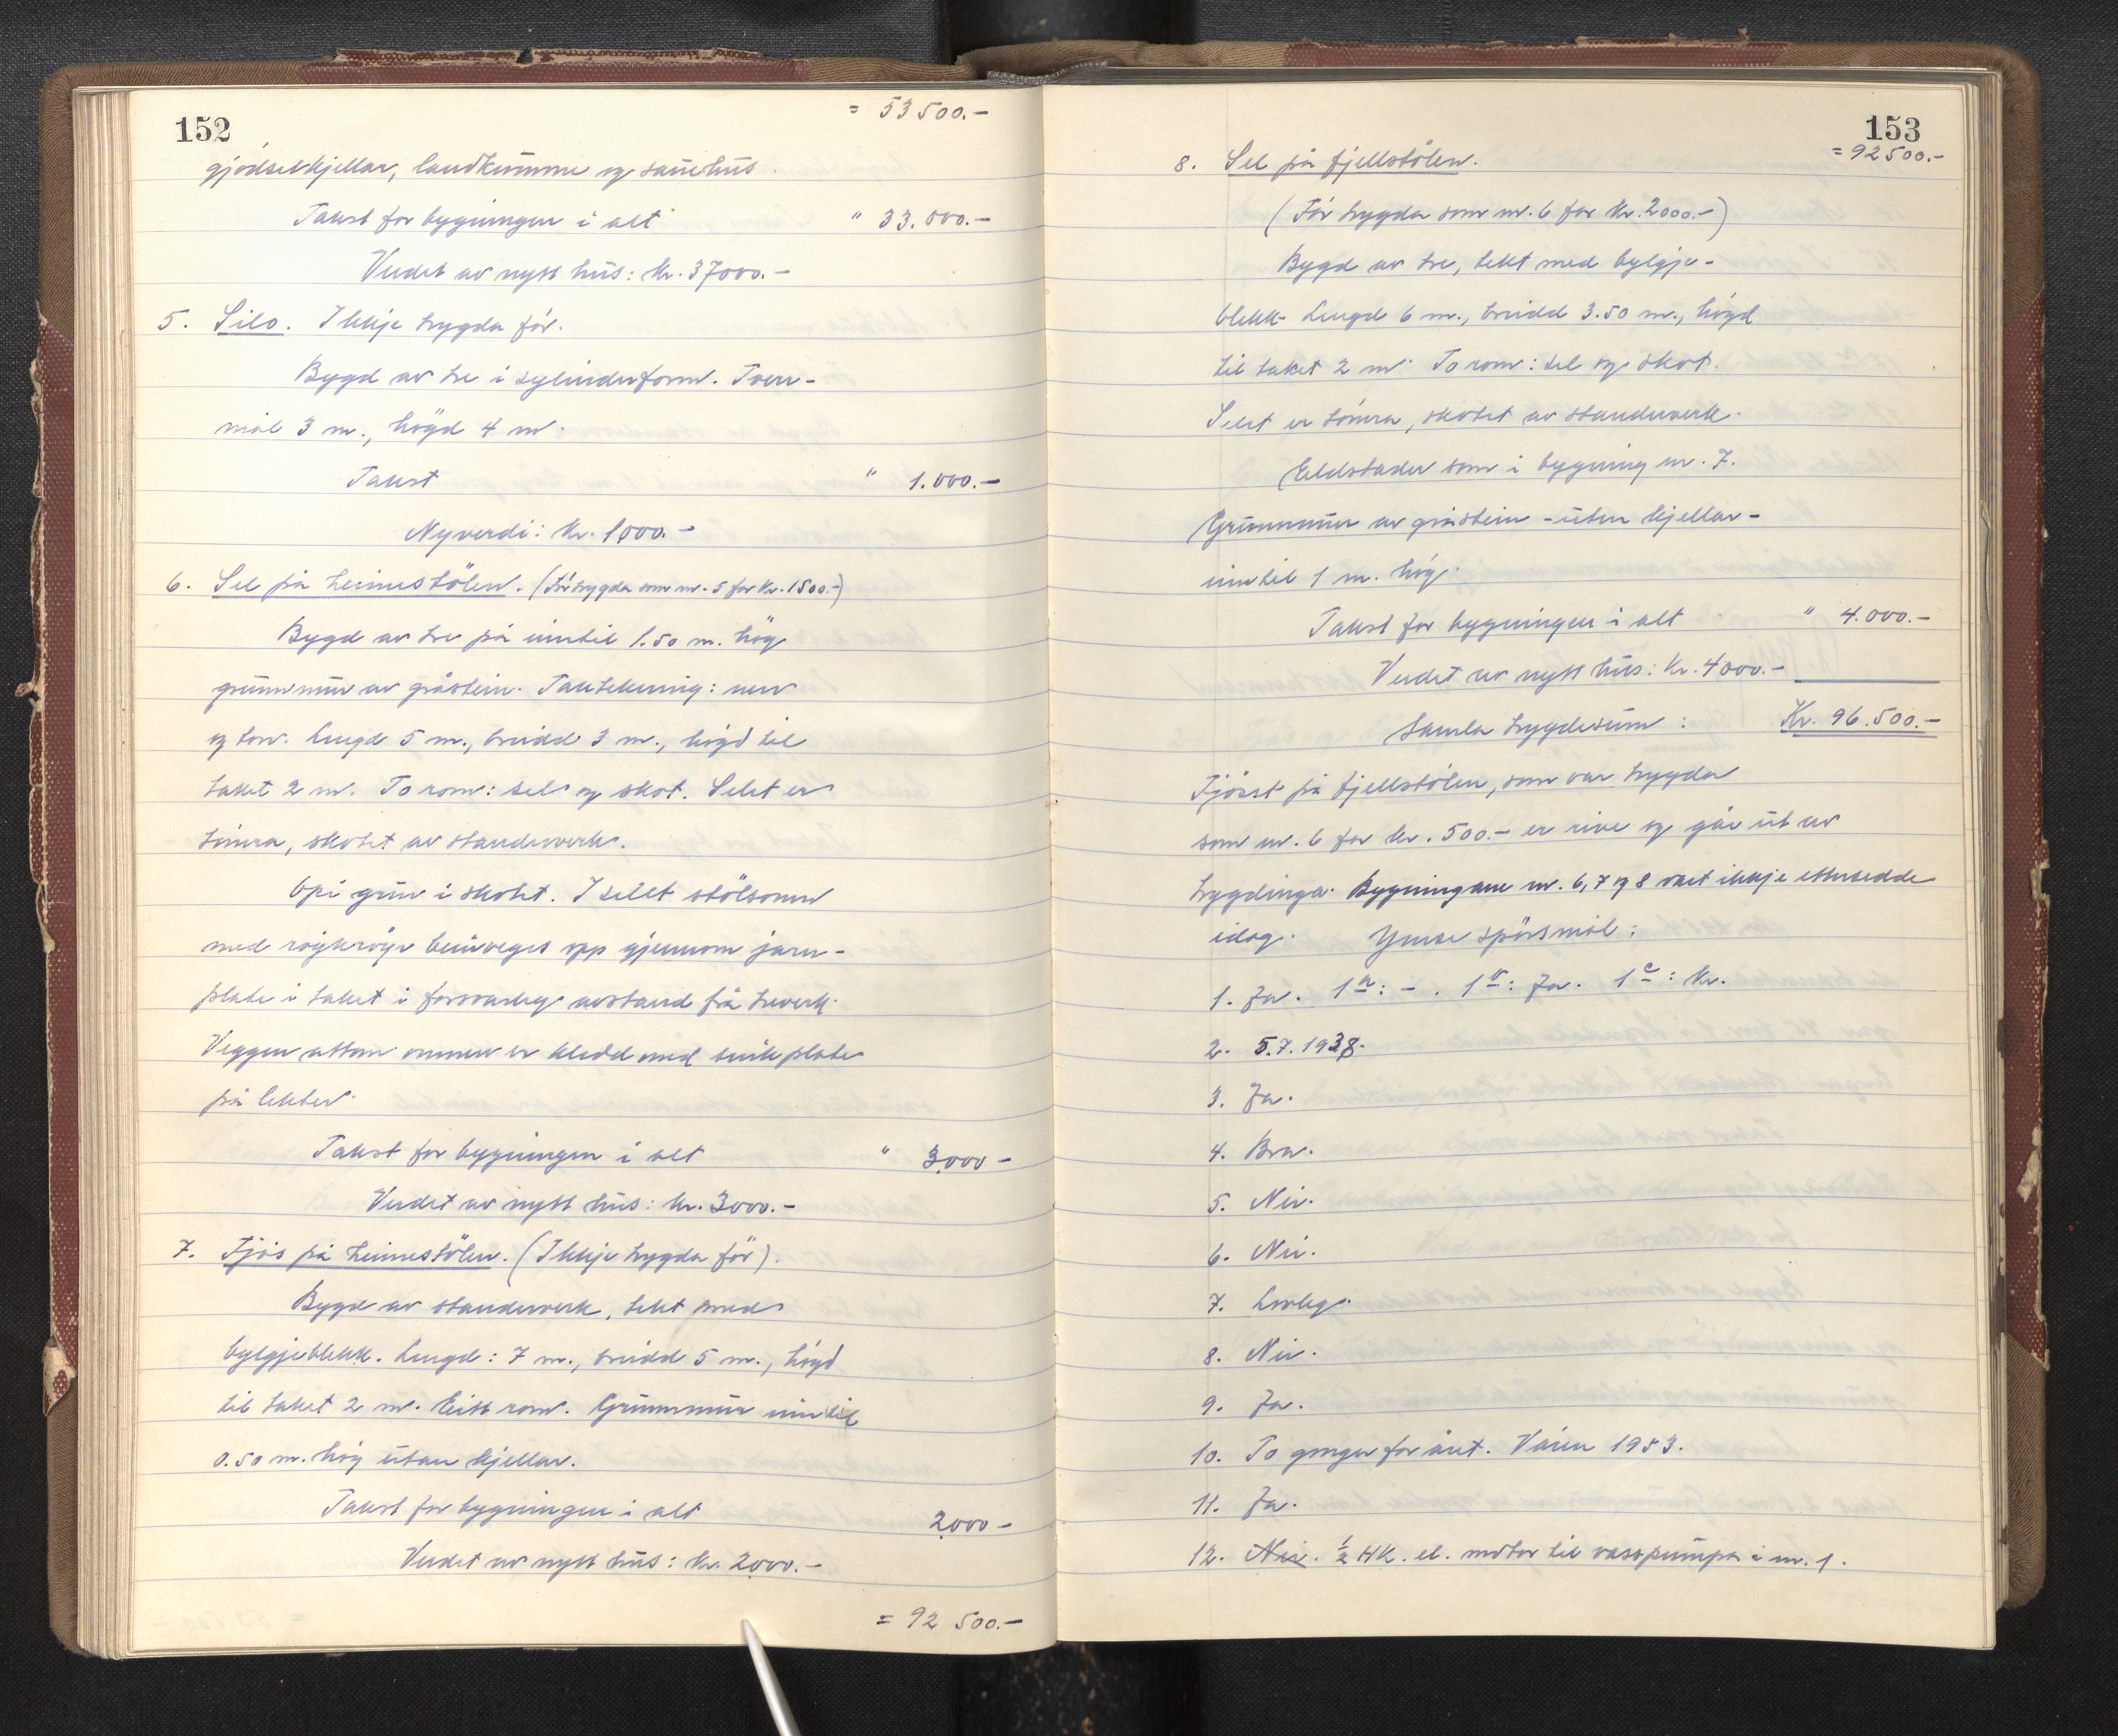 152
= 53500.-
gjødselkjellar, landkumme og sauehus.
Takst for bygningen i alt " 33.000.-
Verdet av nytt hus: kr. 37000.-
5. Silo. Ikkje trygda før.
Bygd av tre i sylinderform. Tverr-
mål 3 m., högd 4 m.
Takst " 1.000.-
Nyverdi: kr. 1000.-
6. Sel på heimestölen. (Før trygda som nr. 5 for kr. 1500.-)
Bygd av tre på inntil 1.50 m. høg
grunnmur av gråstein. Taktekning: nevr
og torv. Lengd 5 m., breidd 3 m., høgd til
taket 2 m. To rom: sel og skot. Selet er
tømra, skotet av standerverk.
Opi gruv i skotet. I selet stölsomn
med røykrøyr beinveges opp gjennom jarn-
plate i taket i forsvarleg avstand frå treverk.
Veggen attom omnen er kledd med eternitplater
på lekter.
Takst for bygningen i alt " 3000-
Verdet av nytt hus: kr. 3000.-
7. Fjøs på heimestölen. (Ikkje trygda før).
Bygd av standerverk, tekt med
bylgjeblekk. Lengd: 7 m., breidd 5 m., høgd
til taket 2 m. Eitt rom. Grunnmur inntil
0.50 m. høg utan kjellar.
Takst for bygningen i alt 2000-
Verdet av nytt hus: kr. 2000.-
= 92 500.-
153
= 92500.-
8. Sel på fjellstölen.
(Før trygda som nr. 6 for kr. 2000.-)
Bygd av tre, tekt med bylgje-
blekk. Lengd 6 m., breidd 3.50 m., høgd
til taket 2 m. To rom: sel og skot.
Selet er tømra, skotet av standerverk.
Eldstader som i bygning nr. 7.
Grunnmur av gråstein - utan kjellar -
inntil 1 m. høg.
Takst for bygningen i alt " 4.000.-
Verdet av nytt hus: kr. 4000.-
Samla trygdesum: Kr. 96.500.-
Fjøset på fjellstölen, som var trygda
som nr. 6 for kr. 500.- er rive og går ut av
trygdinga. Bygningane nr. 6, 7 og 8 vart ikkje ettersedde
idag. Ymse spörsmål:
1. Ja. 1a: - . 1b: Ja. 1c: kr.
2. 5.7.1938.
3. Ja.
4. Bra.
5. Nei.
6. Nei.
7. Lovleg.
8. Nei.
9. Ja.
10. To gonger for året. Våren 1953.
11. Ja.
12. Nei. ½ HK. el. motor til vasspumpa i nr. 1.